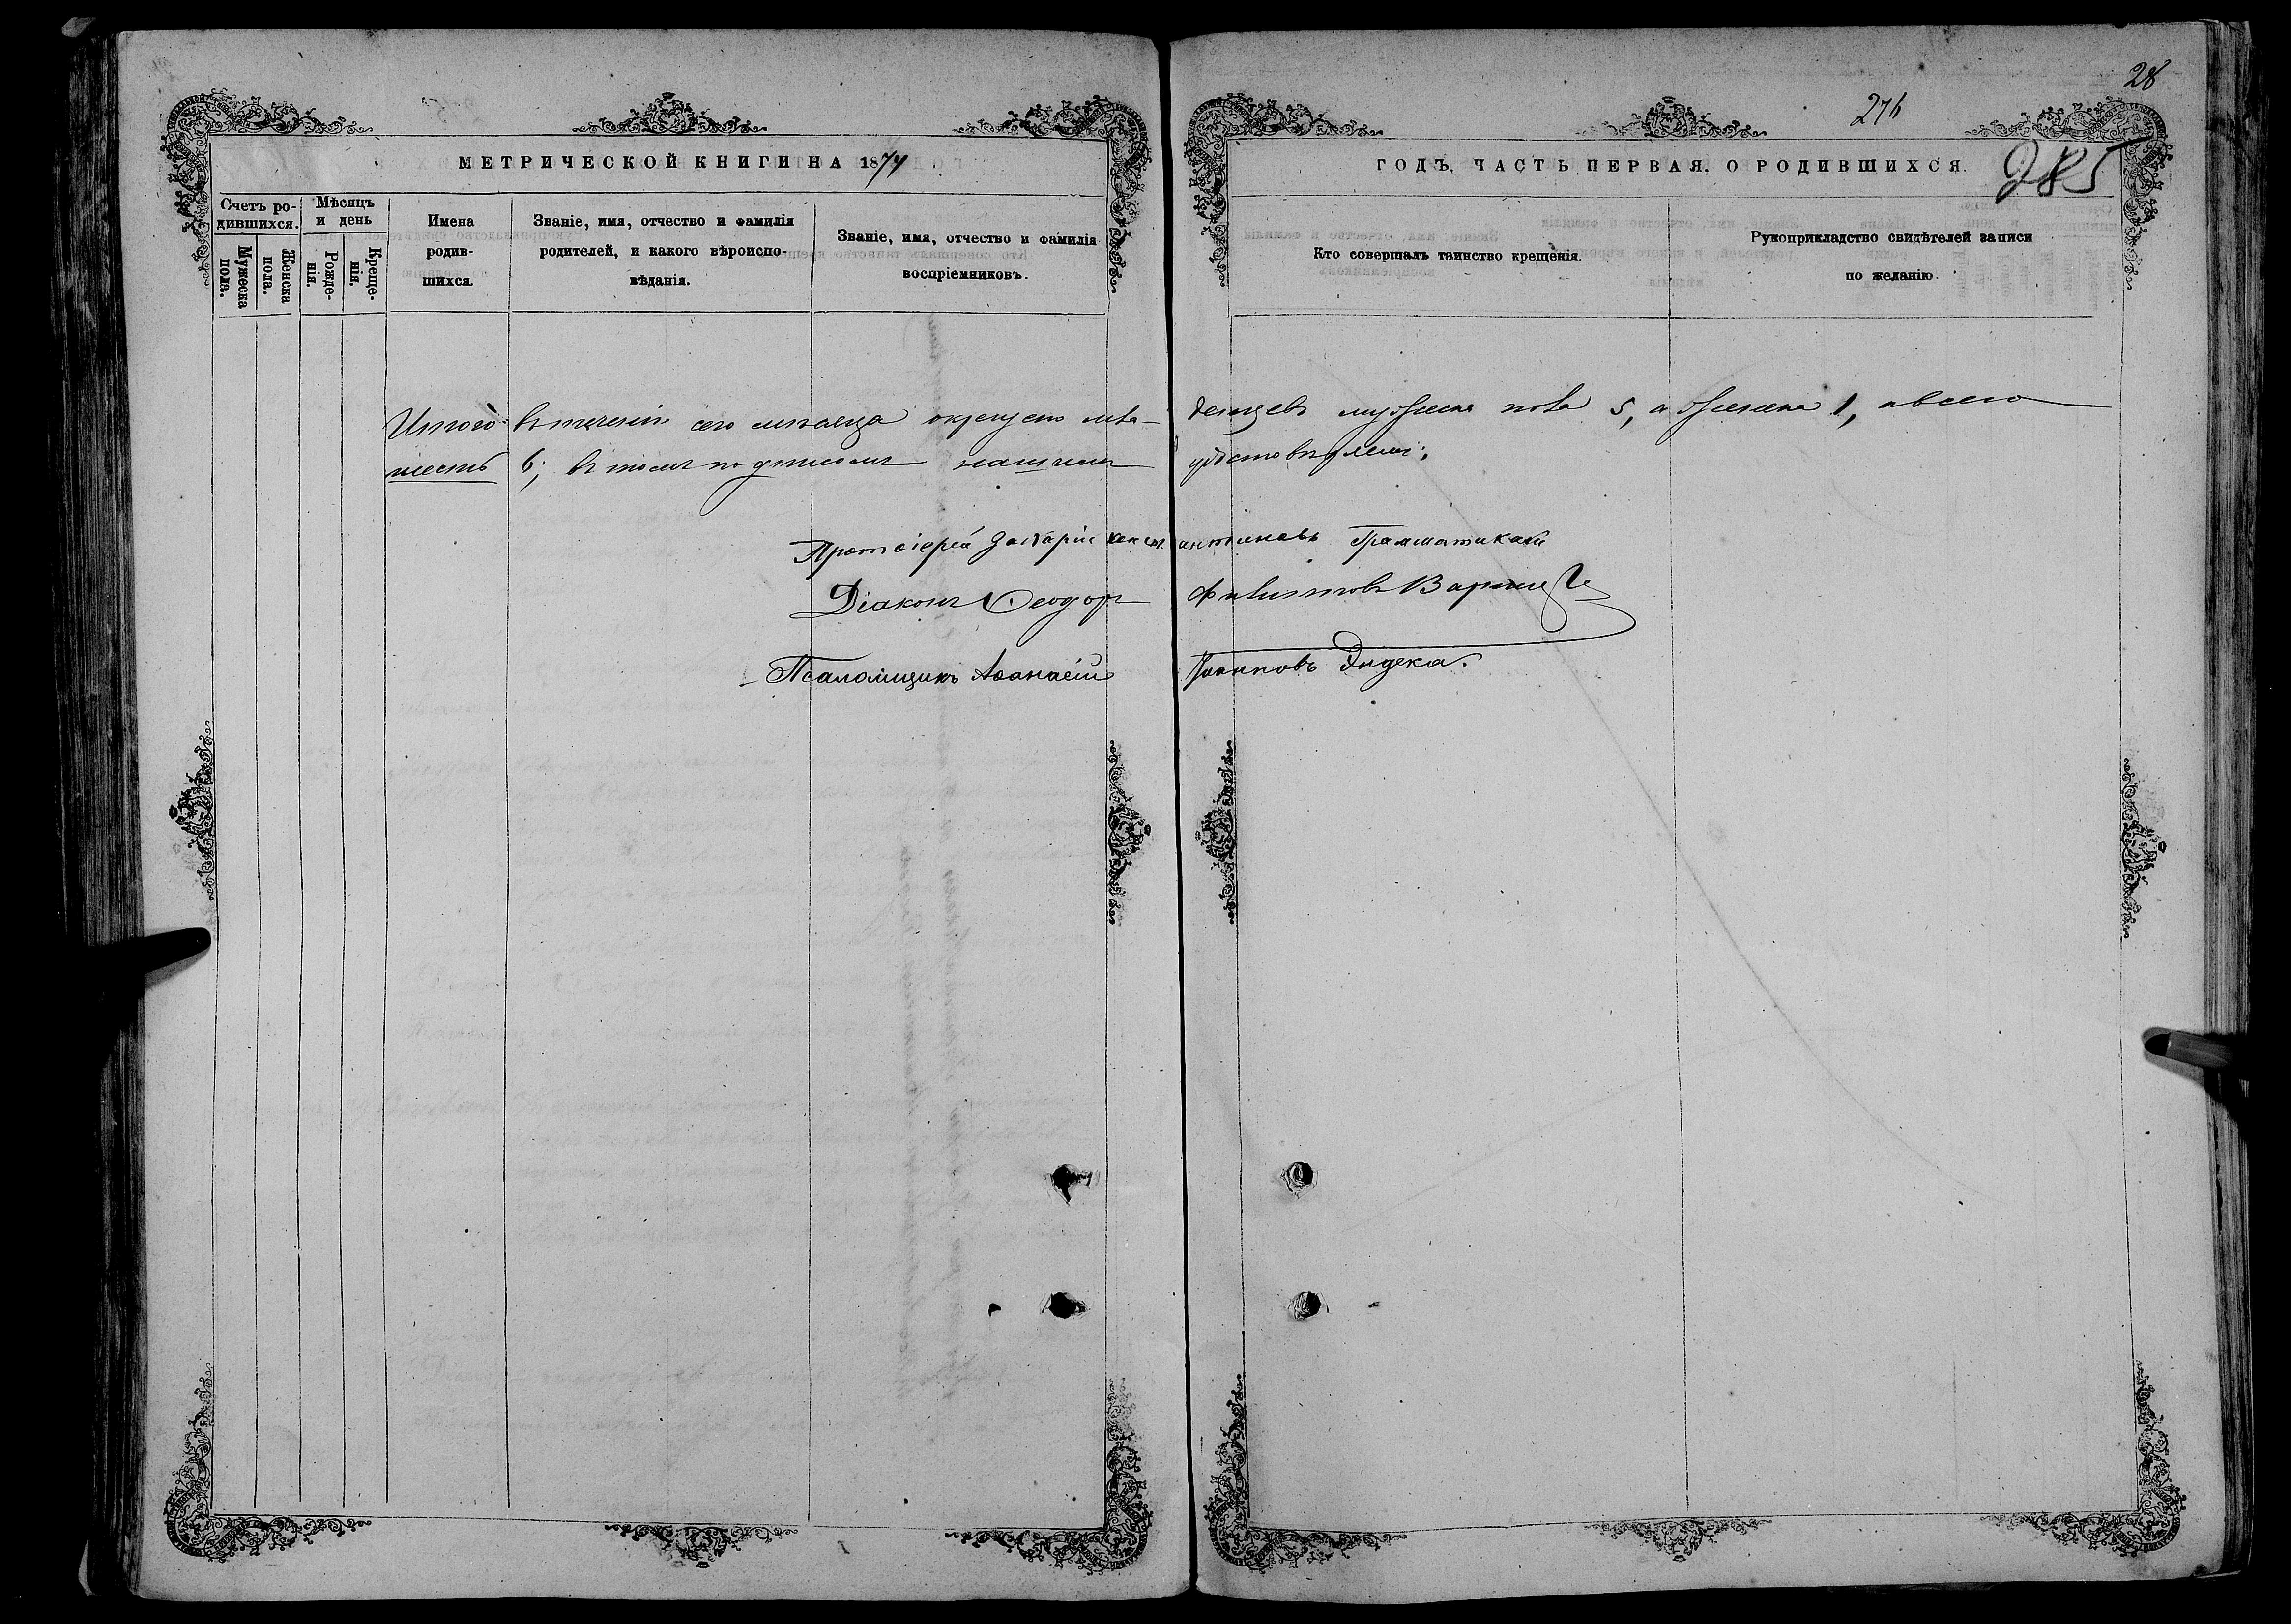 28
276
285
МЕТРИЧЕСКОЙ КНИГИ НА 1874
ГОДЪ, ЧАСТЬ ПЕРВАЯ, О РОДИВШИХСЯ.
Счетъ ро-
дившихся.
Мужеска
пола.
Женска
пола.
Мѣсяцъ
и день
Рожде-
нія.
Креще-
нія.
Имена
родив-
шихся.
Званіе, имя, отчество и фамилія
родителей, и какого вѣроиспо-
вѣданія.
Званіе, имя, отчество и фамилія
воспріемниковъ.
Кто совершалъ таинство крещенія.
Рукоприкладство свидѣтелей записи
по желанію.
Итого въ теченіи сего мѣсяца окрещено мла-денцевъ мужеска пола 5, а женска 1, а всего
шесть 6; въ томъ подписомъ нашимъ удостовѣряемъ:
Протоіерей Захарія Константиновъ Грамматикати
Діаконъ Ѳеодоръ Филипповъ
Псаломщикъ Аѳанасій Іоанновъ Эндека.